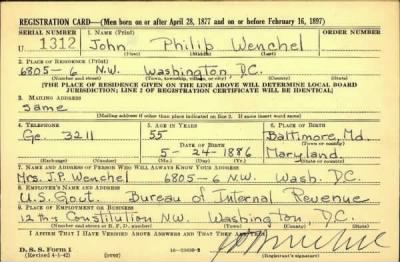 REGISTRATION CARD—(Men born on or after April 28, 1877 and on or before February 16, 1897)
SERIAL NUMBER 1. NAME (Print) ORDER NUMBER
U 1312 John Philip Wenchel
(First) (Middle) (Last)
2. PLACE OF RESIDENCE (Print)
6805-6 N.W. Washington D.C.
(Number and street) (Town, township, village, or city) (County) (State)
[THE PLACE OF RESIDENCE GIVEN ON THE LINE ABOVE WILL DETERMINE LOCAL BOARD
JURISDICTION; LINE 2 OF REGISTRATION CERTIFICATE WILL BE IDENTICAL]
3. MAILING ADDRESS
Same
[Mailing address if other than place indicated on line 2. If same insert word same]
4. TELEPHONE 5. AGE IN YEARS 6. PLACE OF BIRTH
Ge. 3211 55 Baltimore, Md.
DATE OF BIRTH (Town or county)
5-24-1886 Maryland
(Exchange) (Number) (Mo.) (Day) (Yr.) (State or country)
7. NAME AND ADDRESS OF PERSON WHO WILL ALWAYS KNOW YOUR ADDRESS
Mrs. J.P. Wenchel 6805-6 N.W. Wash. D.C.
8. EMPLOYER'S NAME AND ADDRESS
U.S. Govt. Bureau of Internal Revenue
9. PLACE OF EMPLOYMENT OR BUSINESS
12th Constitution N.W. Washington, D.C.
(Number and street or R. F. D. number) (Town) (County) (State)
I AFFIRM THAT I HAVE VERIFIED ABOVE ANSWERS AND THAT THEY ARE TRUE.
D. S. S. Form 1
(Revised 4-1-42) (over) (Registrant's signature)